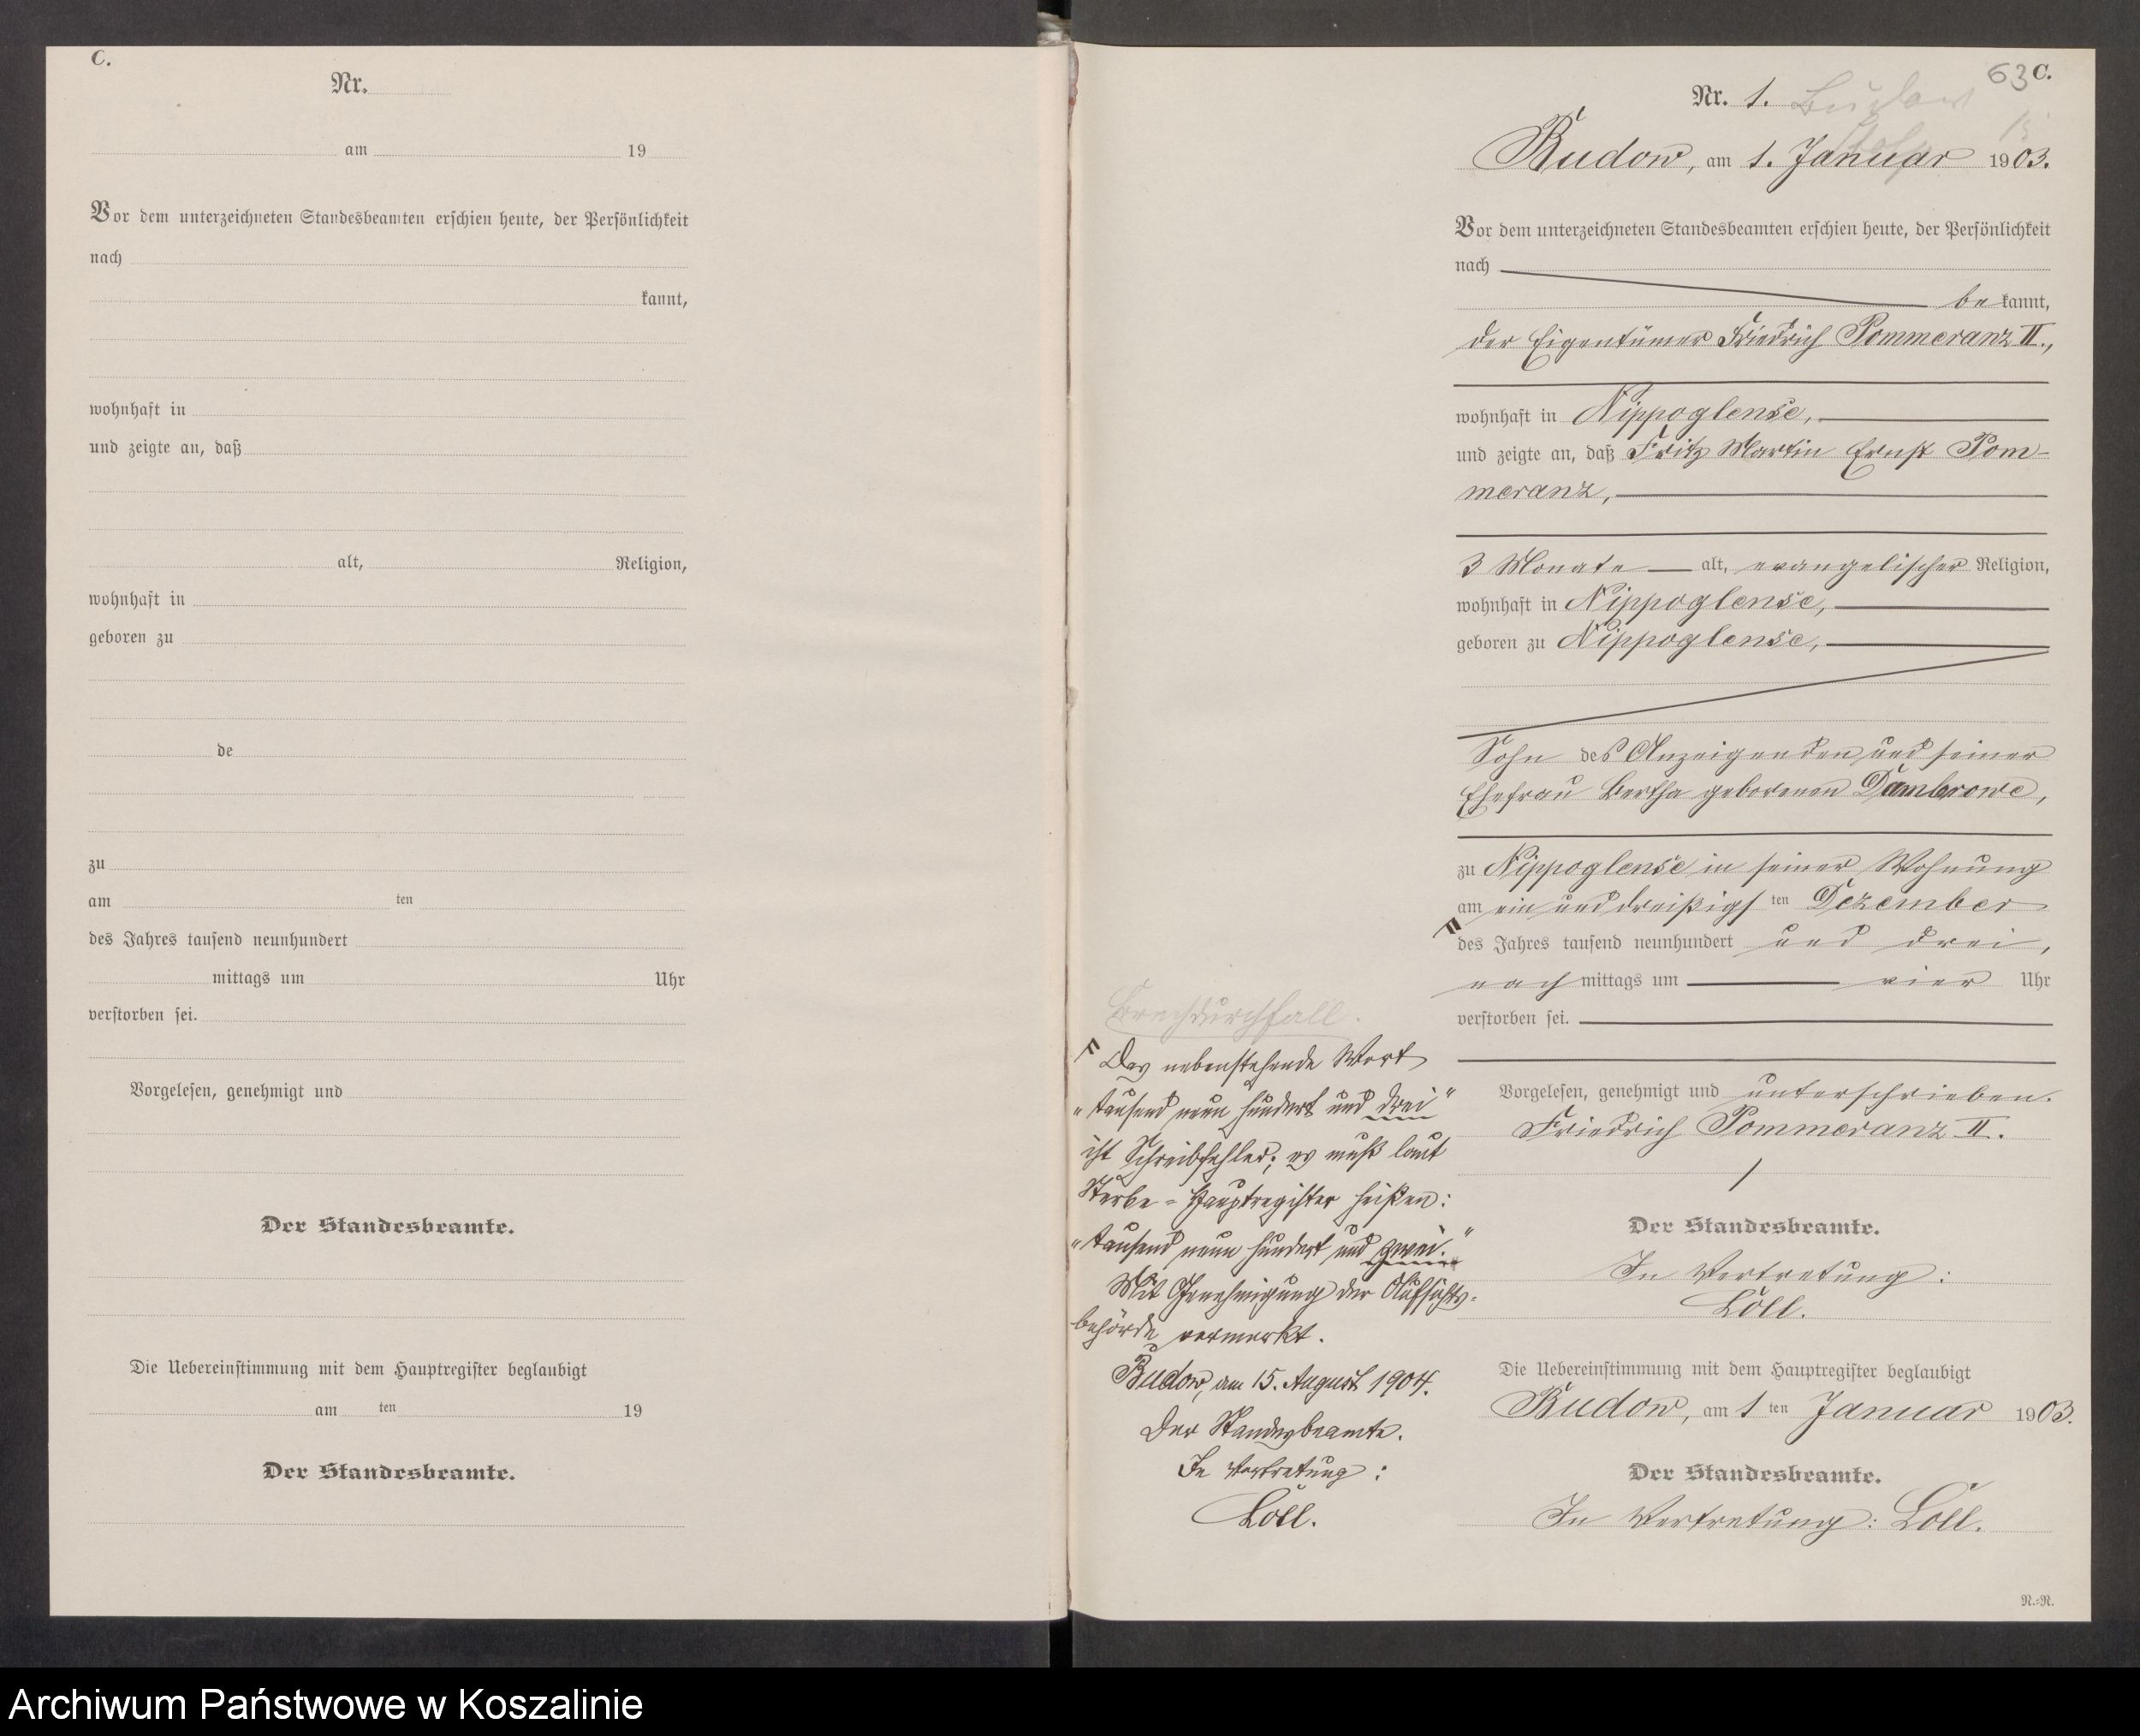 C.
Nr.
am 19
Vor dem unterzeichneten Standesbeamten erschien heute, der Persönlichkeit
nach
kannt,
wohnhaft in
und zeigte an, daß
alt, Religion,
wohnhaft in
geboren zu
de
zu
am ten
des Jahres tausend neunhundert
mittags um Uhr
verstorben sei.
Vorgelesen, genehmigt und
Der Standesbeamte.
Die Uebereinstimmung mit dem Hauptregister beglaubigt
am ten 19
Der Standesbeamte.
63 C.
Nr. 1. Budow
Stolp 15
Budow, am 1. Januar 1903.
Vor dem unterzeichneten Standesbeamten erschien heute, der Persönlichkeit
nach
be kannt,
der Eigentümer Friedrich Pommeranz II.,
wohnhaft in Nippoglense,
und zeigte an, daß Fritz Martin Ernst Pom-
meranz,
3 Monate alt, evangelischer Religion,
wohnhaft in Nippoglense,
geboren zu Nippoglense,
Sohn des Anzeigenden und seiner
Ehefrau Bertha geborenen Dambrowe,
zu Nippoglense in seiner Wohnung
am ein und dreißigs ten Dezember
des Jahres tausend neunhundert und drei,
nach mittags um vier Uhr
verstorben sei.
Vorgelesen, genehmigt und unterschrieben.
Friedrich Pommeranz II.
Der Standesbeamte.
In Vertretung:
Löll.
Die Uebereinstimmung mit dem Hauptregister beglaubigt
Budow, am 1 ten Januar 1903.
Der Standesbeamte.
In Vertretung: Löll.
N.=N.
Brechdurchfall.
Das nebenstehende Wort
"tausend neun hundert und drei"
ist Schreibfehler; es muß laut
Sterbe=Hauptregister heißen:
"tausend neun hundert und zwei."
Mit Genehmigung der Aufsichts=
behörde vermerkt.
Budow, am 15. August 1904.
Der Standesbeamte.
In Vertretung:
Löll.
Archiwum Państwowe w Koszalinie